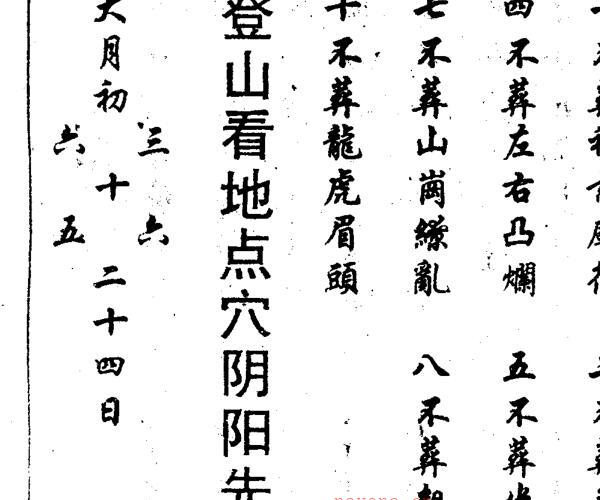 四不葬左右凸爛　五不葬
七不葬山崗繚亂　八不葬
十不葬龍虎眉頭
登山看地点穴阴阳先
三　六
大月初　十　二十四日
六　五